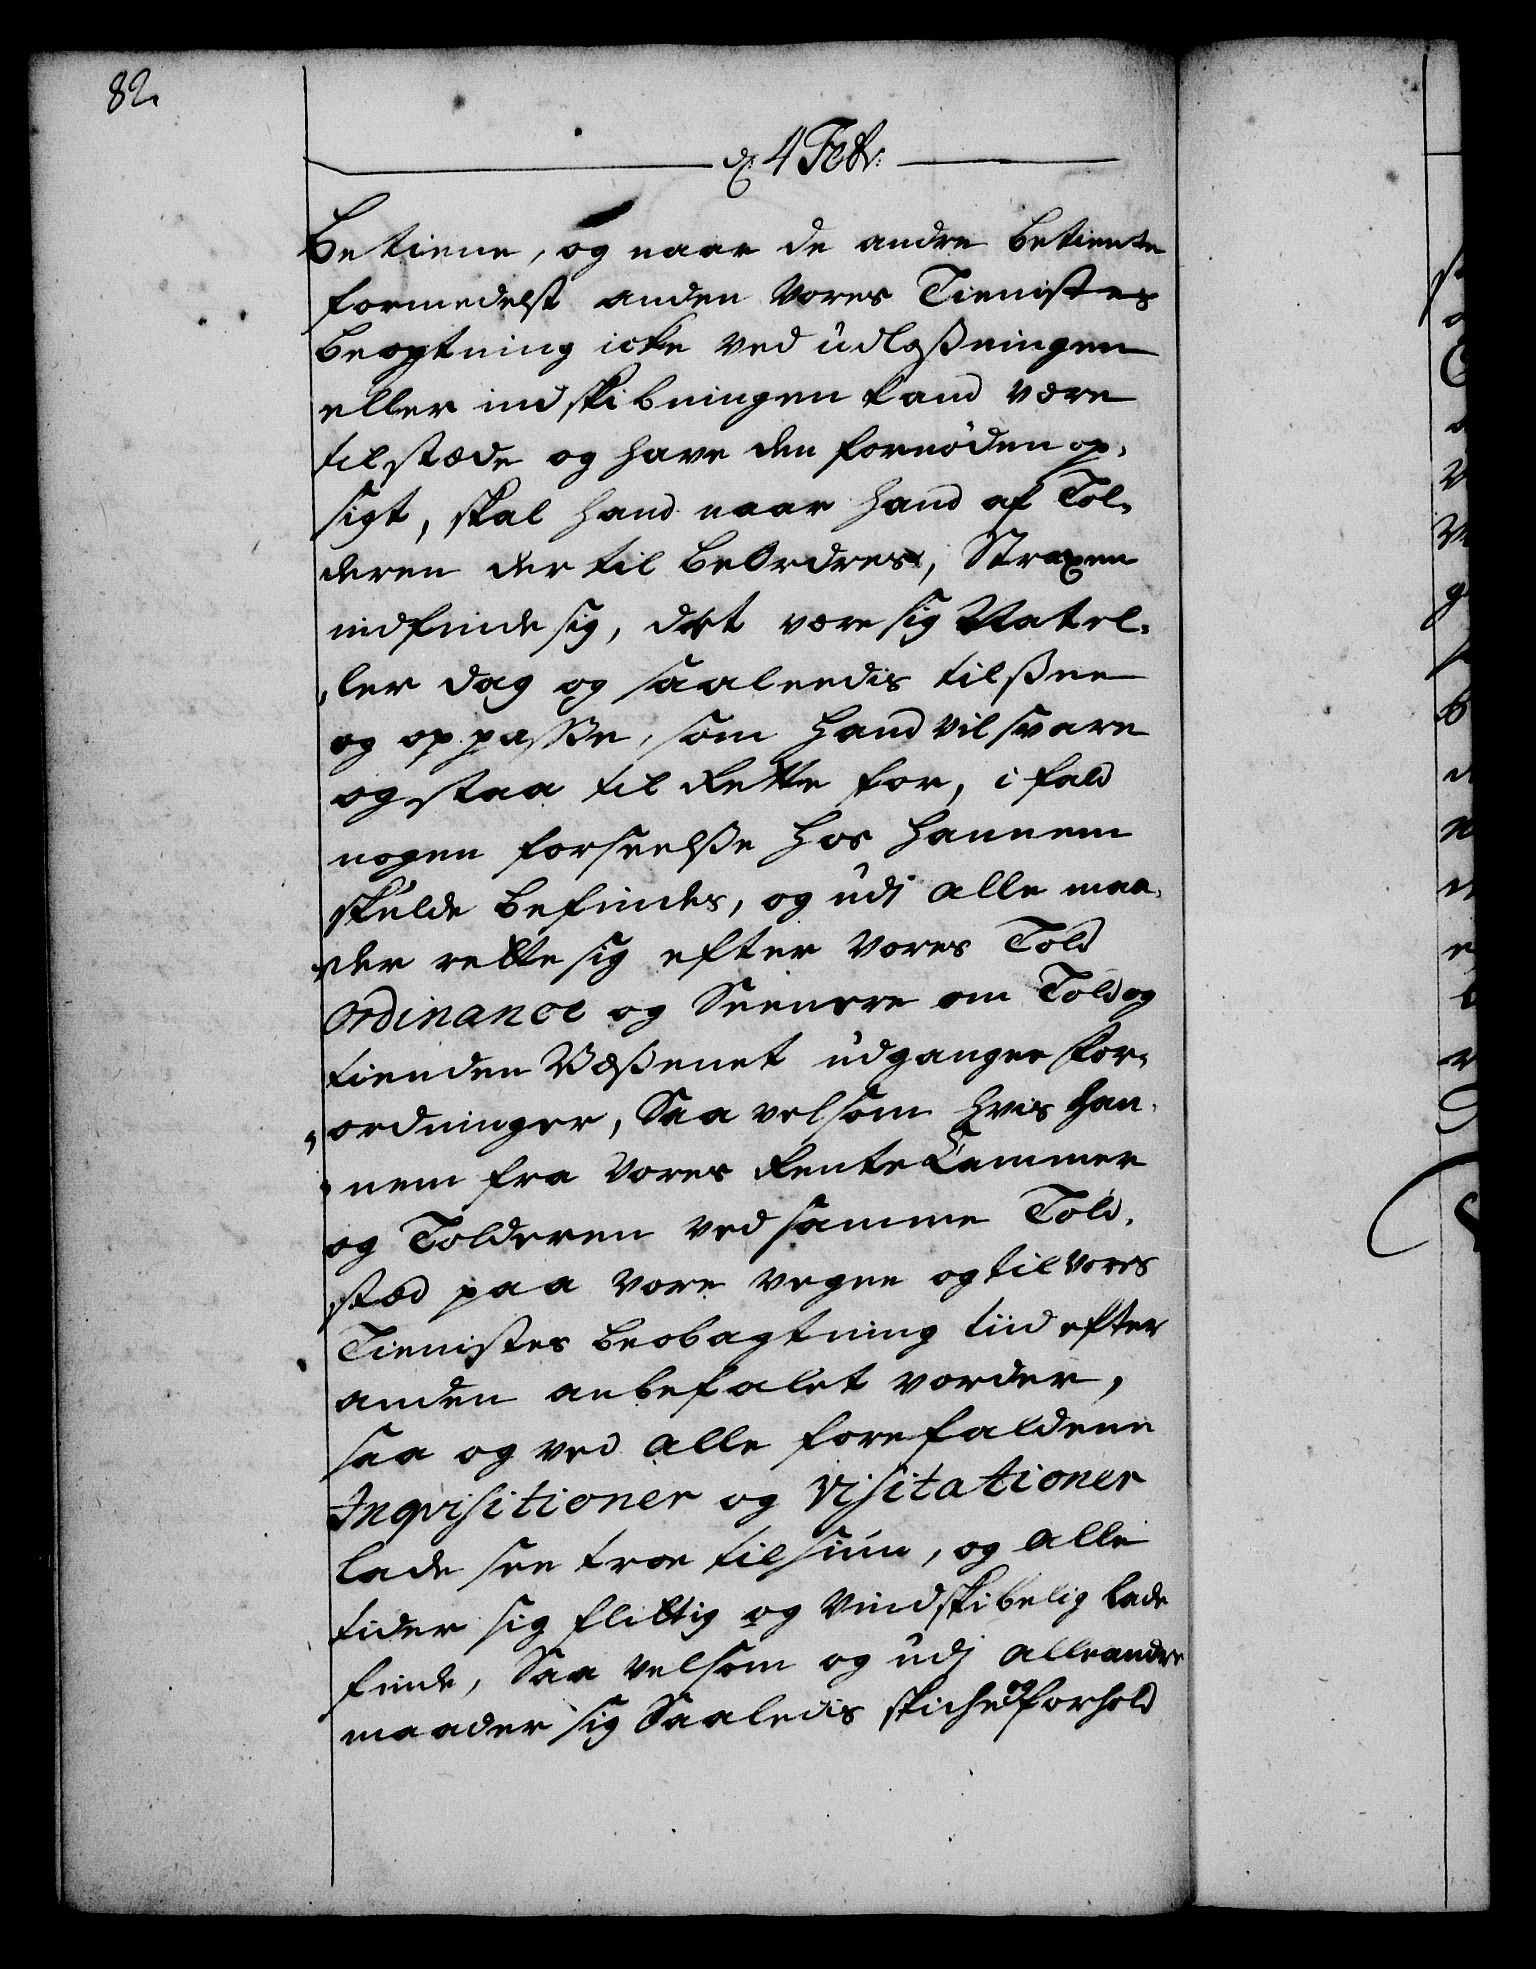 82.
d: 4 Febr:
Betiene, og naar de andre Betiente
formedelst anden Vores Tienistes
Beagtning icke ved üdloßningen
eller indskibningen kand være
tilstæde og have den fornöden op-
sigt, skal hand naar hand af Tol-
deren der til beordres, Straxen
indfinde sig, det være sig Nat el-
ler dag og saaleedis tilsee
og oppasse, som hand vil svare
og staa til Rette for, i fald
nogen forseelße hos hannem
skulde befindes, og üdj alle maa-
der rette sig efter Vores Told
Ordinance og Seenere om Told og
tienden Wæßenet üdgangne for-
ordninger, Saa velsom hvis han-
nem fra Vores RenteCammer
og Tolderen ved samme Told-
stæd paa Vore vegne og til Vores
Tienistes beobagtning tiid efter
anden anbefalet vorder,
saa og ved alle forefaldene
Inqvisitioner og Visitationer
lade see troe tilsiün, og alle
tider sig flittig og Vindskibelig lade
finde, Saa velsom og üdj alle andre
maader sig Saaledis skicke og forhold